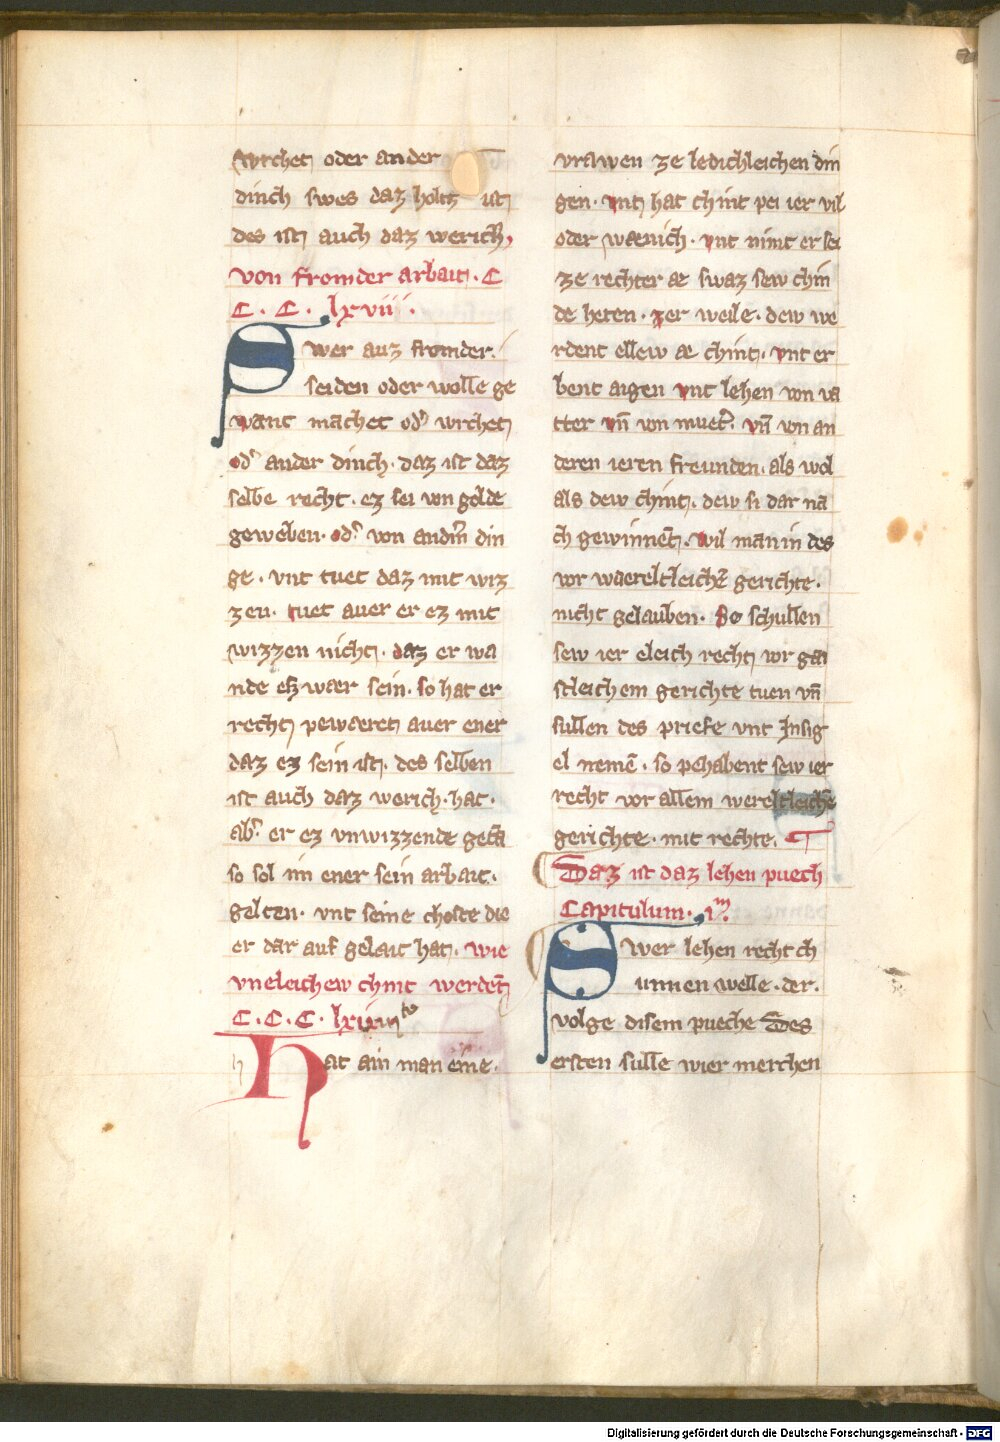 wrchet oder ander
dinch swes daz holtz ist
des ist auch daz werich,
von fromder arbait. C
C. C. lxviii.
Swer auz fromder.
seiden oder wolle ge
want machet odˀ wrchet
odˀ ander dinch. daz ist daz
selbe recht. ez sei von golde
geweben. odˀ von andˀn din
ge. vnt tuet daz mit wiz
zen. tuet auer er ez mit
wizzen nicht. daz er wa
nde ez waer sein. so hat er
recht pewaeret auer ener
daz ez sein ist. des selben
ist auch daz werich. hat.
abˀ er ez vnwizzende getā
so sol im ener sein arbait.
gelten. vnt seine choste die
er dar auf gelait hat. wie
vneleichew chint werdēt
C. C. C. lxviiii
h Hat ain man eine.
vrawen ze ledichleichen din
gen. vnt hat chint pei ier vil
oder waenich. vnt nimt er sei
ze rechter ae swaz sew chin
de heten. zer weile. dew we
rdent ellew ae chint. vnt er
bent aigen vnt lehen von va
tter vn̄ von muetˀ. vn̄ von an
deren ieren freunden. als wol
als dew chint. dew si dar na
ch gewinnēt. wil man in des
vor waereltleichˀ gerichte.
nicht gelauben. So schullen
sew ier eleich recht vor gai
stleichem gerichte tuen vn̄
sullen des priefe vnt Insig
el nemē. so pehabent sew ier
recht vor allem wereltleichē
gerichte. mit rechte.
Daz ist daz lehen puech
Capitulum. iͫ.
Swer lehen recht ch
unnen welle. der.
volge disem pueche Des
ersten sulle wier merchen
Digitalisierung gefördert durch die Deutsche Forschungsgemeinschaft - DFG